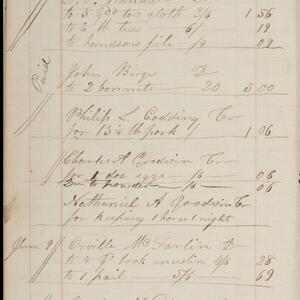 to 3 yd tow cloth 3/6 1 56
to ¼ lb tea 6/- 19
to handsaw file /9 09
Paid
John Birge D
to 2 bonnets 20 5 00
Philip L Codding Cr
for 13 ¼ lb pork 1 06
Charles A Goodwin Cr
for 1 doz eggs /6 06
Dr to powder /6 06
Nathaniel A Goodwin Cr
for keeping 1 horse 1 night
June 9 Orville McFarlin D
yd book muslin 4/6 28
to 1 pail 5/6 69